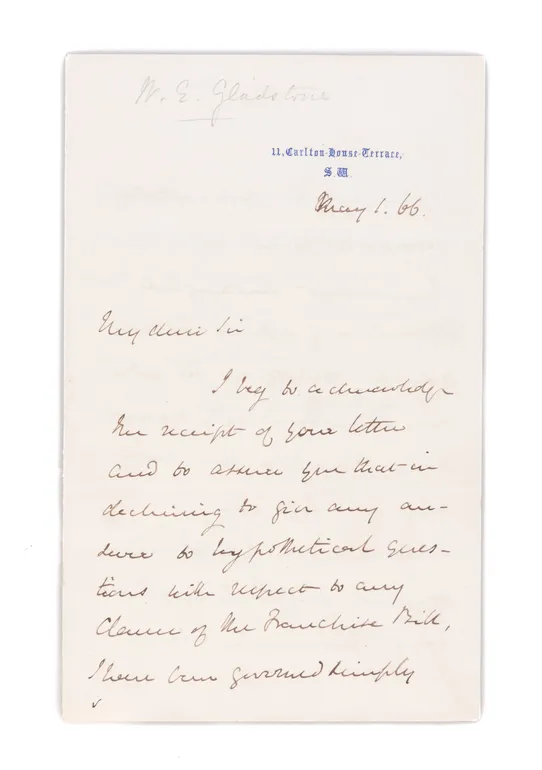 W. E. Gladstone
11, Carlton-House-Terrace,
S.W.
May 1. 66.
My dear Sir
I beg to acknowledge
the receipt of your letter
and to assure you that in
declining to give any an-
swer to hypothetical ques-
tions with respect to any
Clause of the Franchise Bill,
I have been governed simply